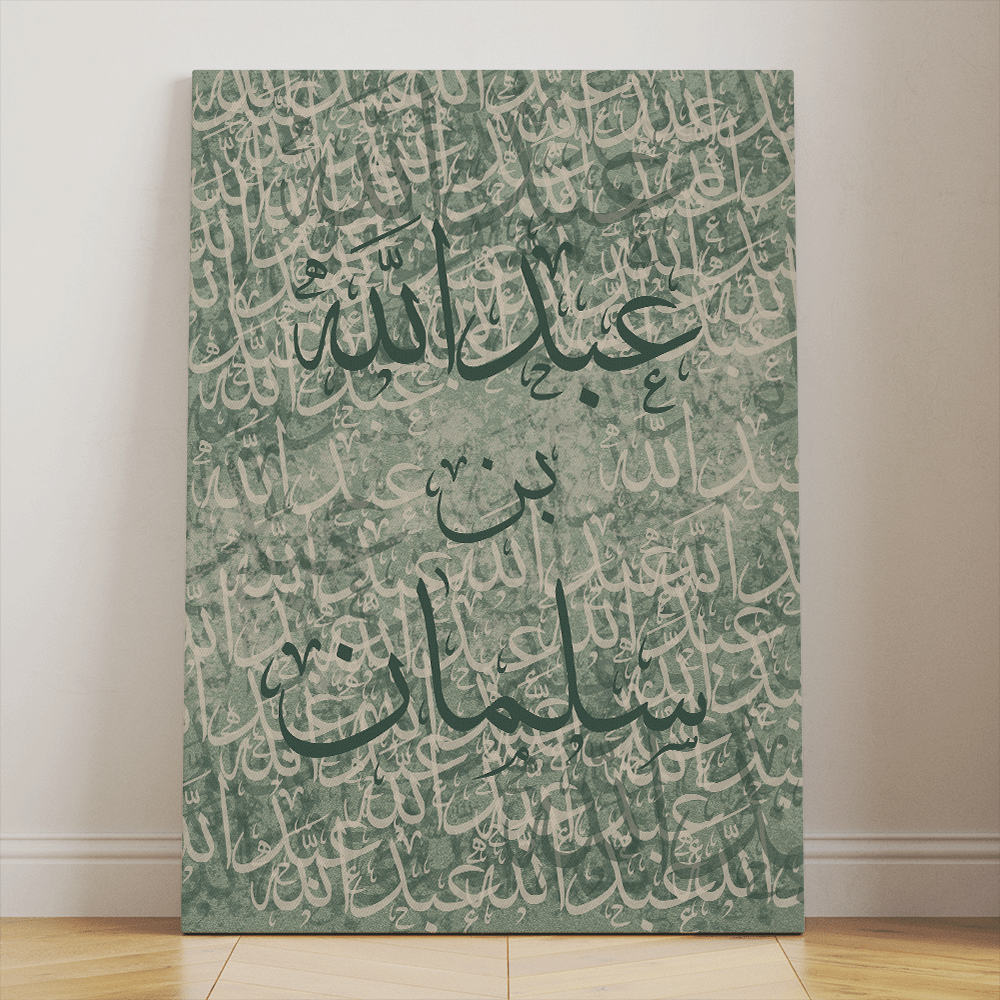 عبدالله
بن
سلمان